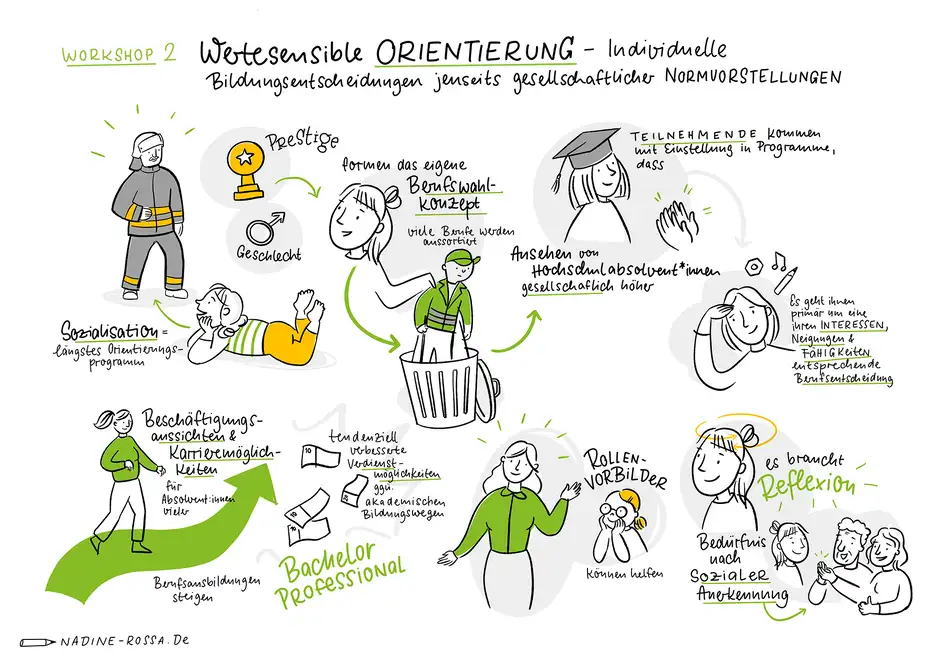 WORKSHOP 2
Wertesensible ORIENTIERUNG – Individuelle
Bildungsentscheidungen jenseits gesellschaftlicher NORMVORSTELLUNGEN
Prestige
Geschlecht
Sozialisation =
längstes Orientierungs-
programm
formen das eigene
Berufswahl-
konzept
viele Berufe werden
aussortiert
Ansehen von
Hochschulabsolvent*innen
gesellschaftlich höher
TEILNEHMENDE kommen
mit Einstellung in Programme,
dass
Es geht ihnen
primär um eine
ihren INTERESSEN,
Neigungen &
FÄHIGKEITEN
entsprechende
Berufsentscheidung
Beschäftigungs-
aussichten &
Karrieremöglich-
keiten
für
Absolvent:innen
vieler
Berufsausbildungen
steigen
10
20
tendenziell
verbesserte
Verdienst-
möglichkeiten
ggü.
akademischen
Bildungswegen
Bachelor
PROFESSIONAL
ROLLEN-
VORBILDER
können helfen
es braucht
Reflexion
Bedürfnis
nach
SOZIALER
Anerkennung
NADINE-ROSSA.De